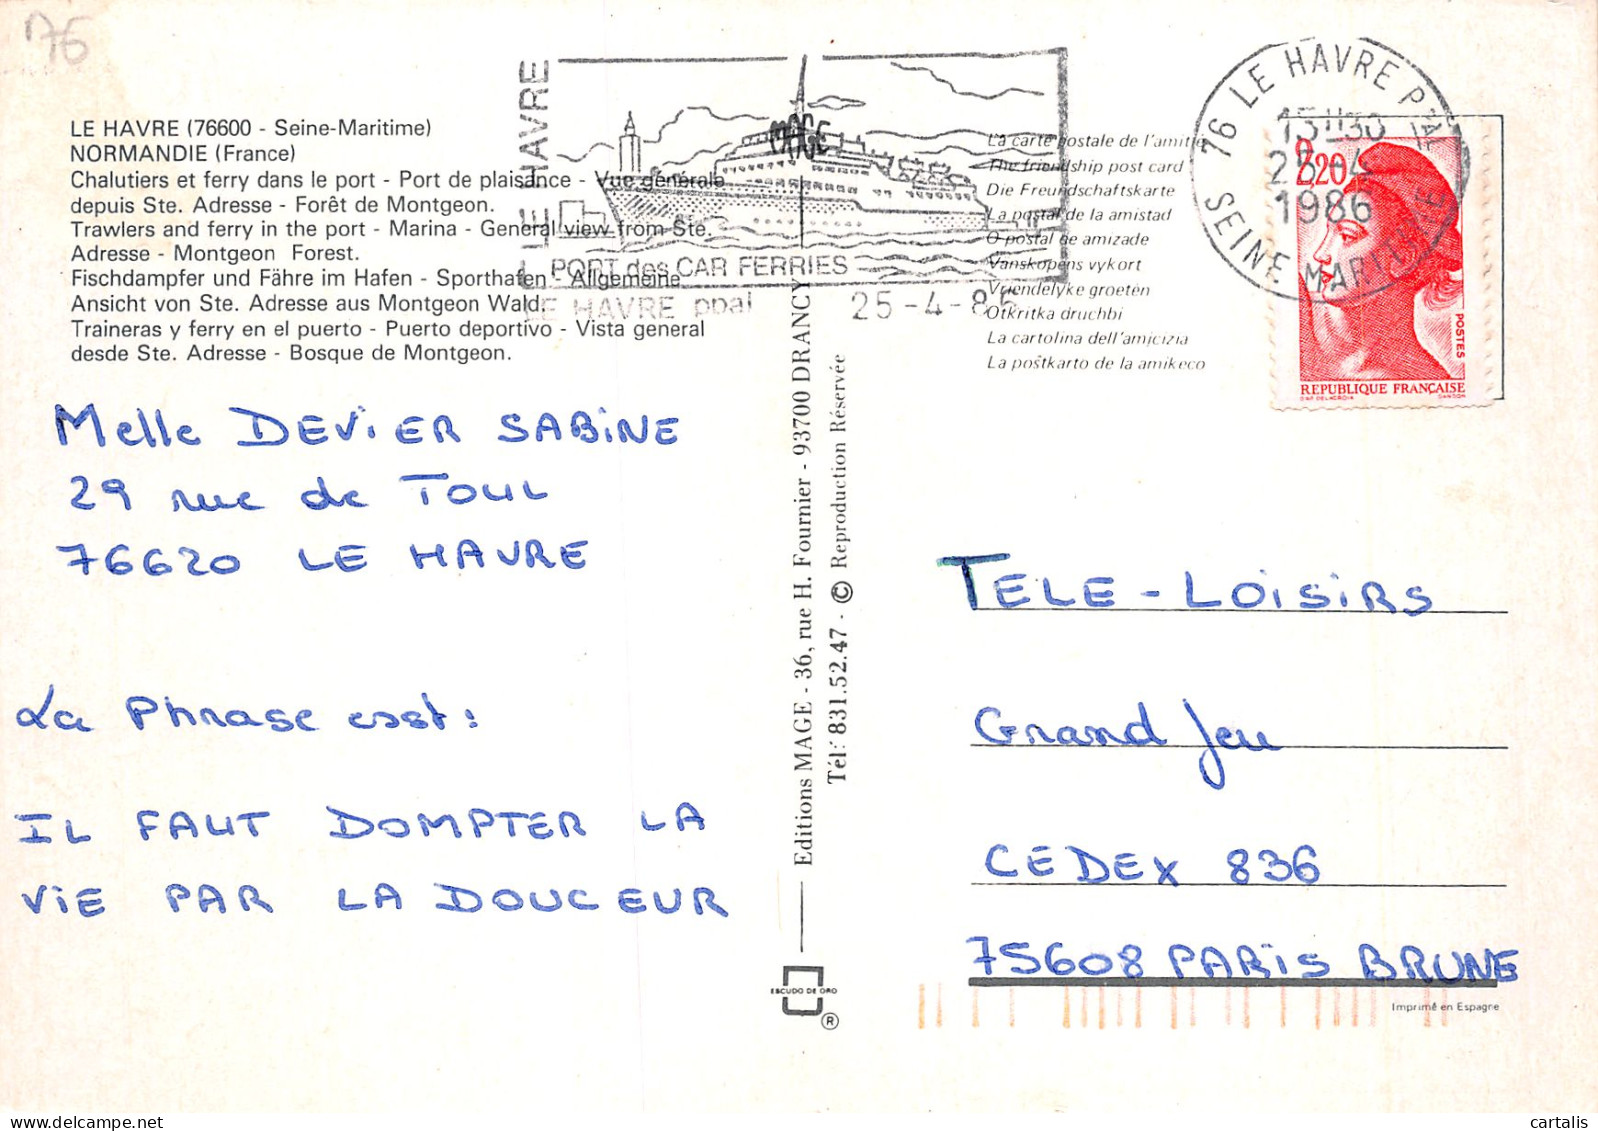 76
LE HAVRE (76600 - Seine-Maritime)
NORMANDIE (France)
Chalutiers et ferry dans le port - Port de plaisance - Vue générale
depuis Ste. Adresse - Forêt de Montgeon.
Trawlers and ferry in the port - Marina - General view from Ste.
Adresse - Montgeon Forest.
Fischdampfer und Fähre im Hafen - Sporthafen - Allgemeine
Ansicht von Ste. Adresse aus Montgeon Wald.
Traineras y ferry en el puerto - Puerto deportivo - Vista general
desde Ste. Adresse - Bosque de Montgeon.
LE HAVRE
LE HAVRE
PORT des CAR FERRIES
LE HAVRE ppal
25-4-86
La carte postale de l'amitié
The friendship post card
Die Freundschaftskarte
La postal de la amistad
O postal de amizade
Vanskopens vykort
Vriendelyke groeten
Otkritka druchbi
La cartolina dell'amicizia
La poŝtkarto de la amikeco
76 LE HAVRE PPAL
13H30
25-4
1986
SEINE MARITIME
2,20
POSTES
REPUBLIQUE FRANÇAISE
D'AP. DELACROIX GANDON
Melle DEVIER SABINE
29 rue de TOUL
76620 LE HAVRE
La Phrase esst:
IL FAUT DOMPTER LA
VIE PAR LA DOUCEUR
Editions MAGE - 36, rue H. Fournier - 93700 DRANCY
Tél: 831.52.47 - © Reproduction Réservée
ESCUDO DE ORO
®
TELE-LOISIRS
Grand Jeu
CEDEX 836
75608 PARIS BRUNE
Imprimé en Espagne
cartalis